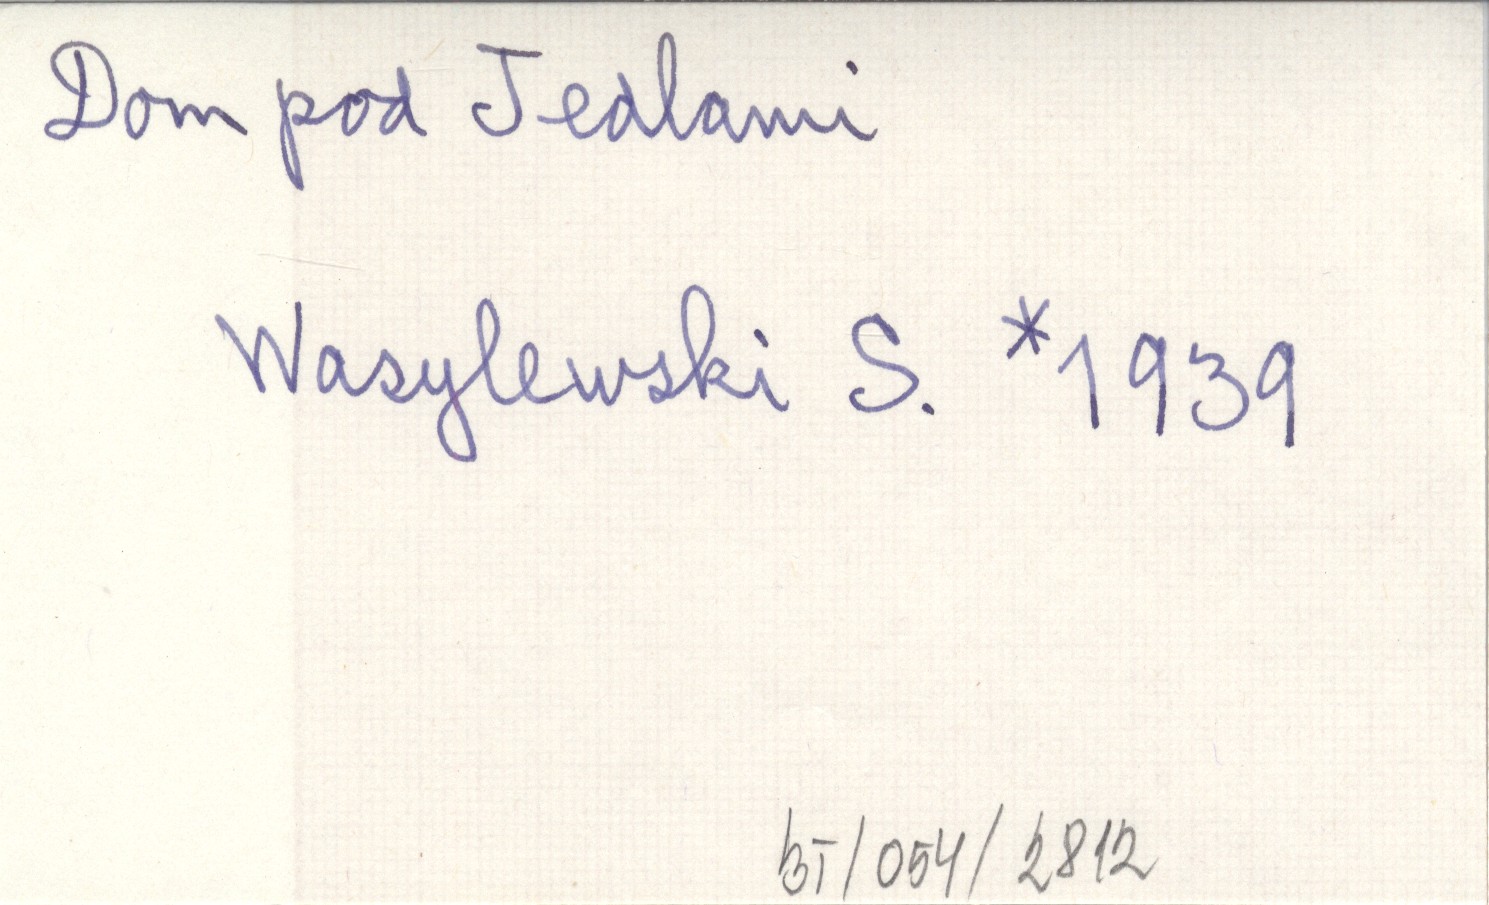 Dom pod Jedlami
Wasylewski S. *1939
BT/054/2812